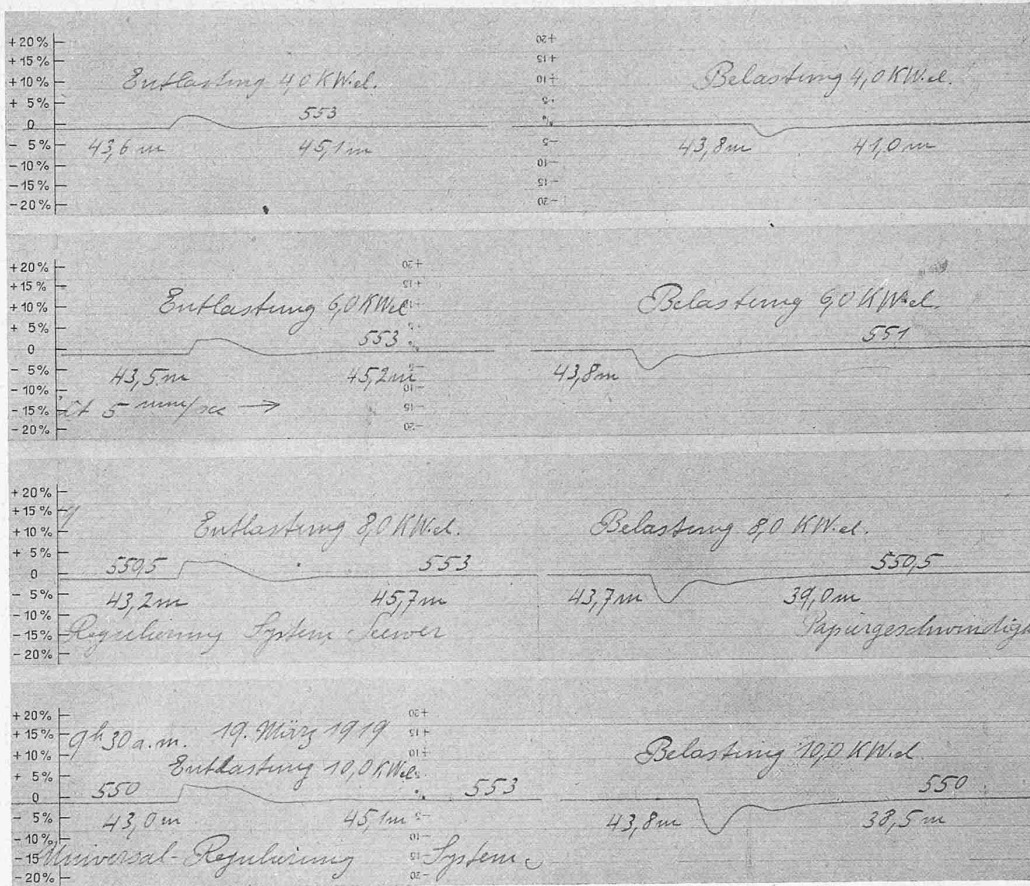 +20%
+15%
+10%
+ 5%
0
- 5%
-10%
-15%
-20%
Entlastung 4,0 KW.el.
553
43,6 m 45,1 m
+20
+15
+10
+5
%
-5
-10
-15
-20
Belastung 4,0 KW.el.
43,8 m 41,0 m
+20%
+15%
+10%
+ 5%
0
- 5%
-10%
-15%
-20%
Entlastung 6,0 KW.el
553
43,5 m 45,2 m
5 mm/sec →
+20
+15
+10
-5
-10
-15
-20
Belastung 6,0 KW.el.
551
43,8 m
+20%
+15%
+10%
+ 5%
0
- 5%
-10%
-15%
-20%
Entlastung 8,0 KW.el.
550,5 553
43,2 m 45,7 m
Regulierung System Seewer
Belastung 8,0 KW.el.
550,5
43,7 m 39,0 m
Papiergeschwindigk
+20%
+15%
+10%
+ 5%
0
- 5%
-10%
-15%
-20%
9h 30 a.m. 19. März 1919
Entlastung 10,0 KW.el.
550 553
43,0 m 45,1 m
Universal-Regulierung System
+20
+15
+10
-5
-10
-15
-20
Belastung 10,0 KW.el
550
43,8 m 38,5 m